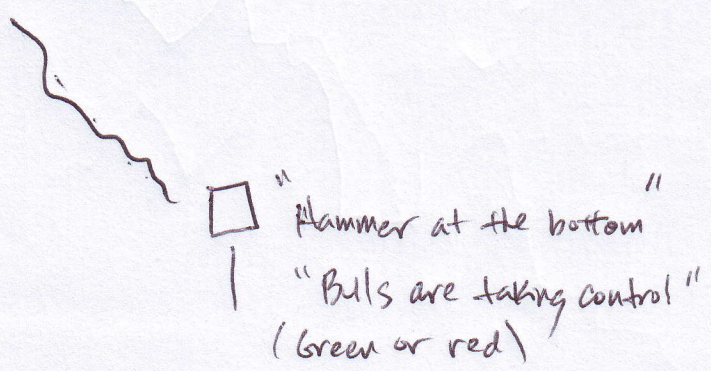 "Hammer at the bottom"
"Bulls are taking control"
(Green or red)